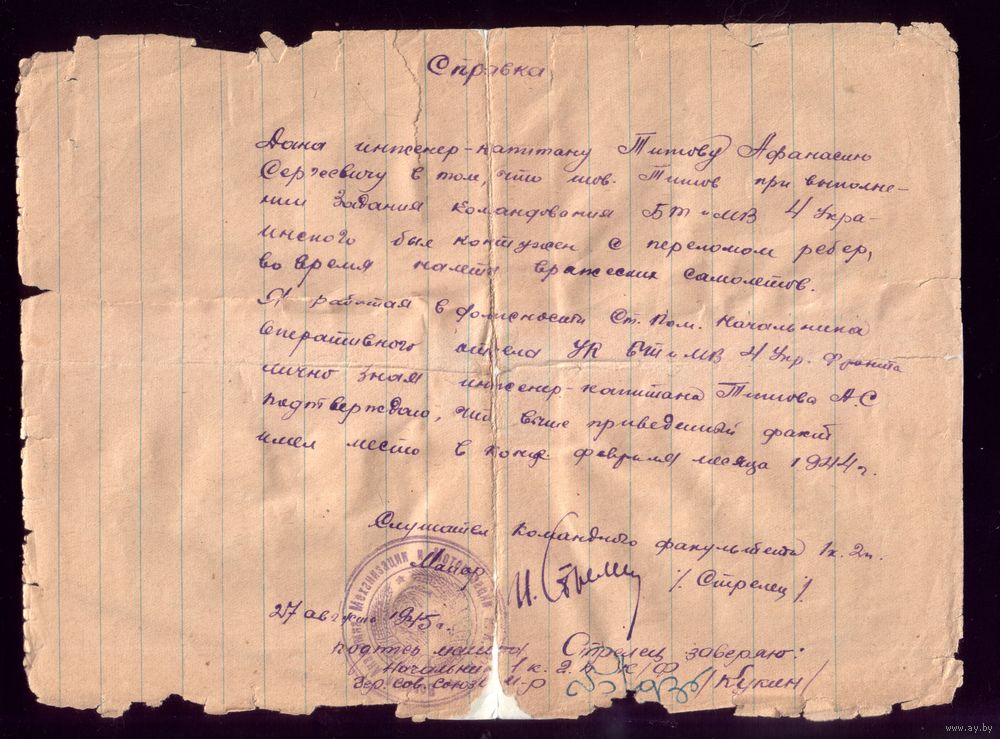 Справка
Дана инженер-капитану Титову Афанасию
Сергеевичу в том, что тов. Титов при выполне-
нии задания командования БТ и МВ 4 Укра-
инского был контужен с переломом ребер,
во время налета вражеских самолетов.
Я работая в должности Ст. пом. начальника
Оперативного отдела УК БТ и МВ 4 Укр. Фронта
лично зная инженер-капитана Титова А.С
подтверждаю, что выше приведенный факт
имел место в конце февраля месяца 1944 г.
Слушател Командного факультета 1к. 2п.
Майор И. Стрелец /Стрелец/
27 августа 1945 г.
подпись майора Стрелец заверяю:
Начальник 1 к. 2 к Ф
Гер. Сов. Союза м-р /Кукин/
Механизации и Моторизации
www.ay.by